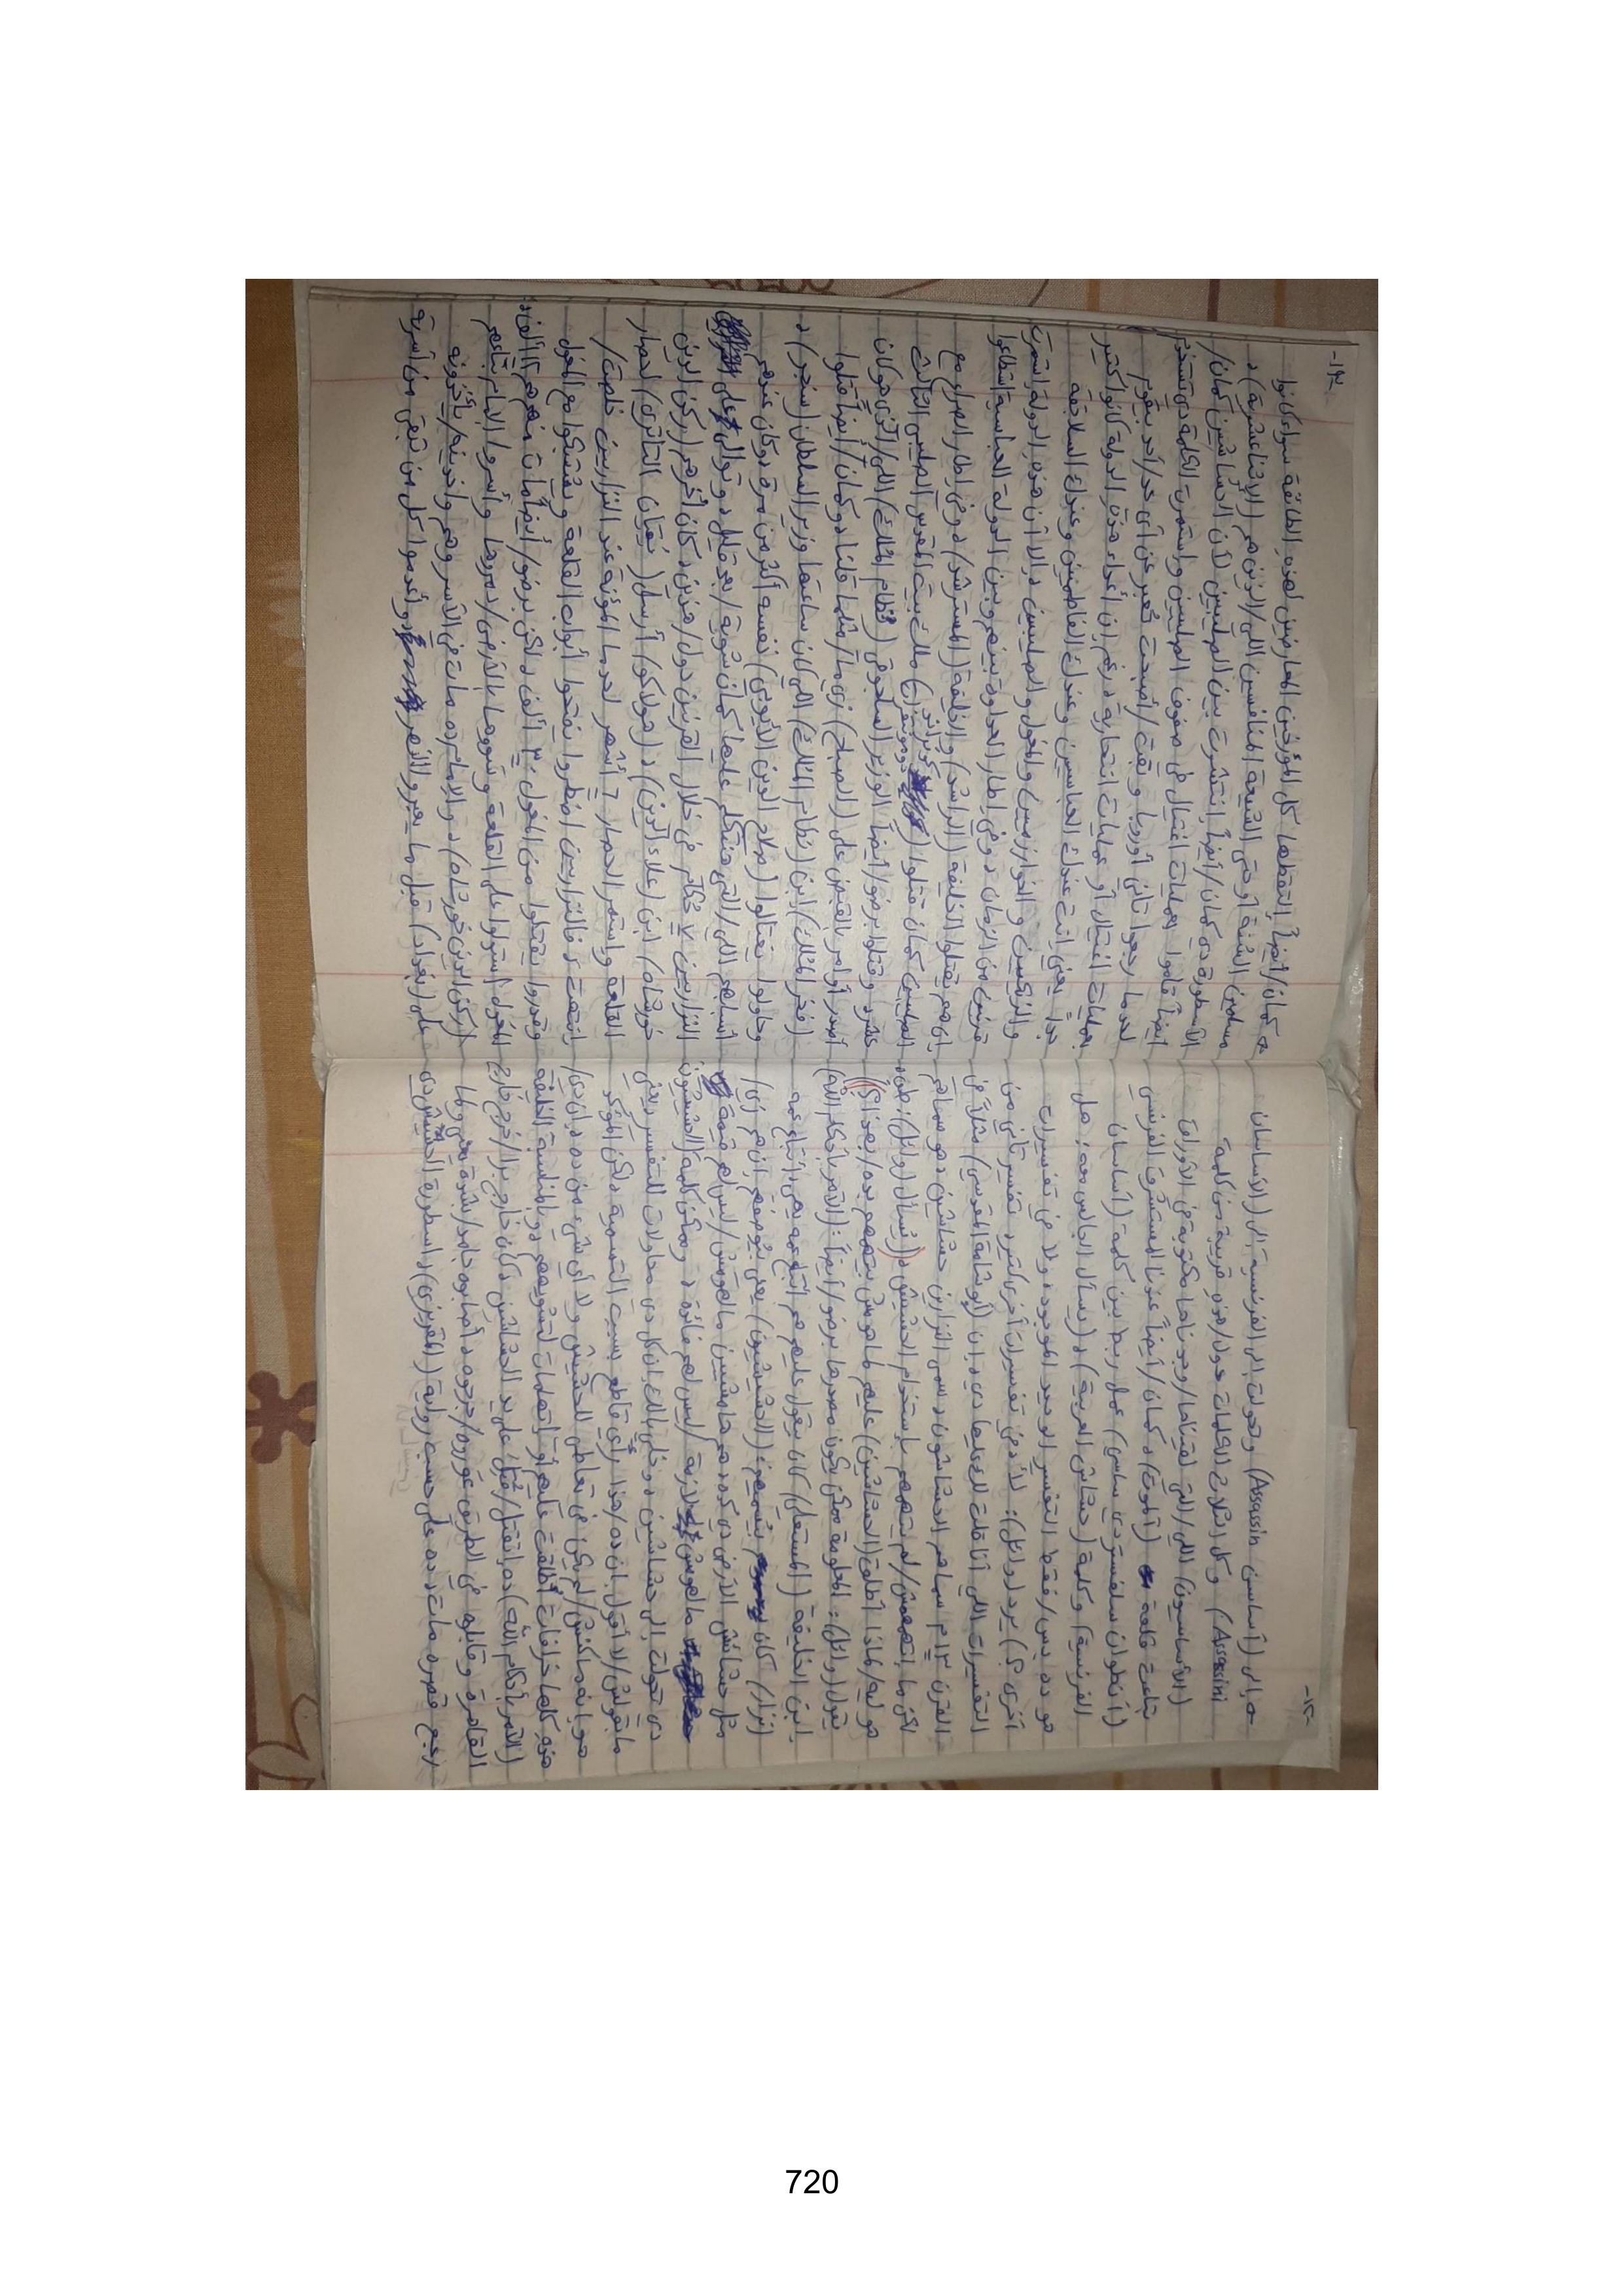 -١٢-
إلى (أساسن Assassin) وتحولت إلى الفرنسية إلى (الأساسان
Assassini) وكل التلات الكلمات دول/هذه قريبة من كلمة
(الأساسيون) اللي/التي لقيناها/وجدناها مكتوبة في الأوراق
بتاعت قلعة (ألموت)، كمان/أيضاً عندنا المستشرق الفرنسي
(أنطوان سلفستر دي ساسي) عمل ربط بين كلمة (أساسان
الفرنسية) وكلمة (حشاش العربية)، (يسأل الجالس معه: هل
هو ده بس/فقط التفسير الوحيد الموجود، ولا في تفسيرات
أخرى؟) يرد (وائل): لأ، في تفسيرات أخرى كتير، تفسير تاني من
التفسيرات اللي أنا قلت لك عليها دي، إن (أبو شامة المقدسي) مثلاً في
القرن ١٣م سماهم الحشاشون، سمى النزاريين حشاشين، هو سماهم
لكن ما اتهمهمش/لم يتهمهم بإستخدام الحشيش، ((يسأل (وائل): طب،
هو ليه/لماذا أطلق (الحشاشين) عليهم لما هو مش بيتهمهم بده/بهذا؟))
يقول (وائل): المعلومة ممكن يكون مصدرها برضو/أيضاً: (الآمر بأحكام الله)
ابن الخليفة (المستعلي) كان بيقول عليهم هم أتباع عمه يعني أتباع عمه
(نزار)، كان بيُسميهم: (الحشيشيون) يعني بيُوصفهم إن هم زي/
مثل حشائش الأرض دي كده، هم هامشيين مالهومش/ليس لهم قيمة
مالهومش لازمة/ليس لهم فائدة، وممكن كلمة (الحشيشيون)
دي تحولت إلى حشاشين، وخلي بالك إن كل دي محاولات للتفسير، يعني
مابقولش/لا أقول إن ده/هذا رأي قاطع بسبب التسمية، لكن المؤكد
هو إنه ماكنش/لم يكن في تعاطي للحشيش ولا أي شيء من ده، إن دي/
هذه كلها خرافات أُطلقت عليهم أو اتهامات لتشويههم، وبالمناسبة الخليفة
(الآمر بأحكام الله) ده، اتقتل/قُتل على يد الحشاشين، كان خارج برا/خرج خارج
القاهرة وقابلوه في الطريق عوروه/جرحوه، أصابوه جامد/بشدة يعني ولما
رجع قصره مات، ده على حسب رواية (المقريزي)، اسطورة الحشيش دي
-١٣-
كمان/أيضاً التقطها كل المؤرخين المعارضين لهذه الطائفة سواء كانوا
مسلمين السُّنة أو حتى الشيعة المنافسين اللي/الذين هم (الإثناعشرية)،
الأسطورة دي كمان/أيضاً انتشرت بين الصليبيين لأن الحشاشين كمان/
أيضاً قاموا بعمليات اغتيال في صفوف الصليبيين واستمرت الكلمة دي تستخدم
لحد ما رجعوا تاني أوروبا وبقت/أصبحت تُعبر عن أي حد/أحد بيقوم
بعمليات اغتيال أو عمليات انتحارية، رغم إن أعداء هذه الدولة كانوا كتير
جداً يعني إنت عندك العباسيين وعندك الفاطميين وعندك السلاجقة
والزنكيين والخوارزميين والمغول والصليبيين، إلا أن هذه الدولة استمرت
قرنين من الزمان، وفي إطار العداوة بينهم وبين الدولة العباسية استطاعوا
إن هم يقتلوا الخليفة (الراشد) والخليفة (المسترشد)، وفي إطار الصراع مع
الصليبيين كمان قتلوا (كونراد دو مونفرا) ملك بيت المقدس الصليبي التالت
عشر، وقتلوا برضو/أيضاً الوزير السلجوقي (نظام المُلك) اللي/الذي هو كان
أصدر أوامر بالقبض على (الصباح) زي ما/مثلما قلنا، وكمان/أيضاً قتلوا
(فخر المُلك) ابن (نظام المُلك) اللي كان ساعتها وزير السلطان (سنجر)،
وحاولوا يغتالوا (صلاح الدين الأيوبي) نفسه أكثر من مرة، وكان عندهم
أسبابهم اللي/التي هنتكلم عليها كمان شوية/بعد قليل، وتوالى على
النزاريين ٧ حُكام في خلال القرنين دول/هذين، كان آخرهم (ركن الدين
خورشاه) ابن (علاء الدين)، (هولاكو) أرسل (نيقان التتري) لحصار
القلعة واستمر الحصار ٦ أشهر لحد ما المؤنة عند النزاريين خلصت/
إنتهت، فالنزاريين اضطروا يفتحوا أبواب القلعة ويشتبكوا مع المغول
وقدروا يقتلوا من المغول ٣٠ ألف، لكن برضو/أيضاً مات منهم ١٢ ألف،
المغول استولوا على القلعة وسووها بالأرض/دمروها وأسروا الإمام بتاعهم
(ركن الدين خورشاه)، والإمام ده مات في الأسر وهم واخدينه/يأخذونه
على (بغداد) قبل ما يعبروا النهر، وأعدموا كل من تبقى من أسرته
720